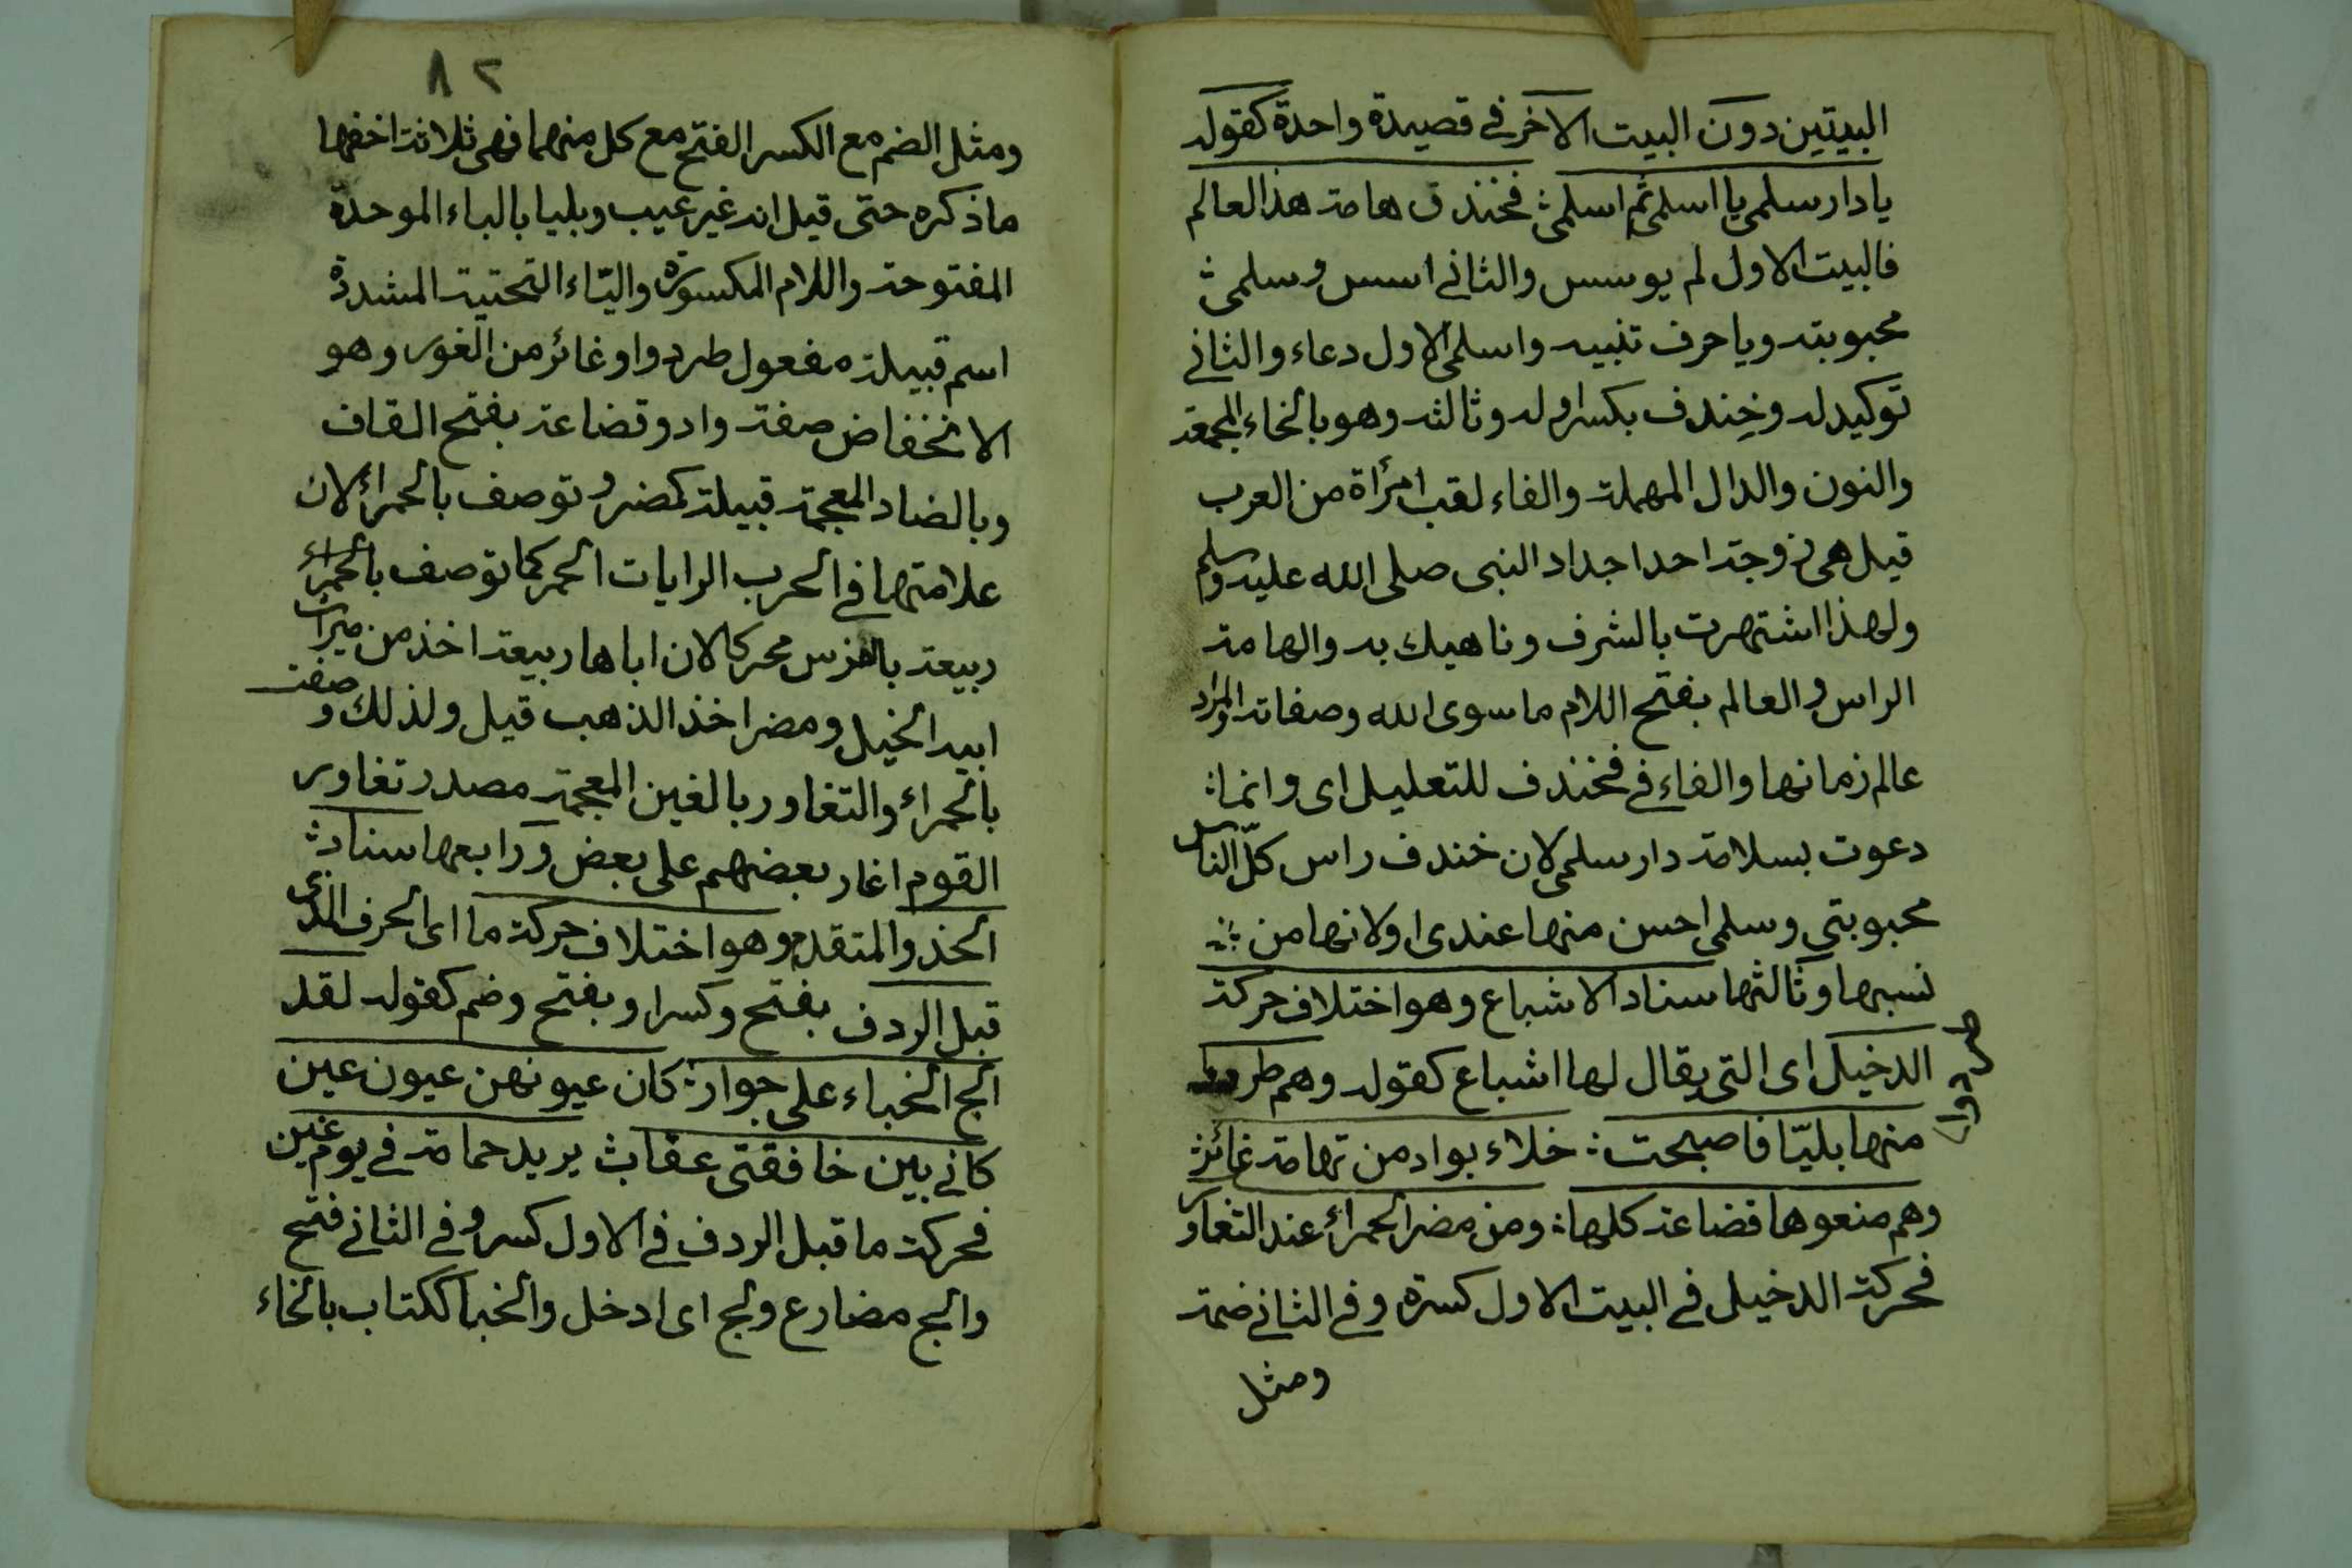 البيتين دون البيت الاخر في قصيدة واحدة كقوله
يا دار سلمى يا اسلمى ثم اسلمى فخندف هامة هذا العالم
فالبيت الاول لم يوسس والثاني اسس وسلمى
محبوبته ويا حرف تنبيه واسلمى الاول دعاء والثاني
توكيد له وخِندف بكسر اوله وثالثه وهو بالخاء المعجمة
والنون والدال المهملة والفاء لقب امرأة من العرب
قيل هى زوجة احد اجداد النبى صلى الله عليه وسلم
ولهذا اشتهرت بالشرف وناهيك به والهامة
الراس والعالم بفتح اللام ما سوى الله وصفاته والمراد
عالم زمانها والفاء في فخندف للتعليل اى وانما
دعوت بسلامة دار سلمى لان خندف راس كلّ الناس
محبوبتي وسلمى احسن منها عندى او لانها من
نسبها وثالثها سناد الاشباع وهو اختلاف حركة
الدخيل اى التى يقال لها اشباع كقوله وهم طردوا
طردوا
منها بليّا فاصبحت خلاء بواد من تهامة غائر
وهم منعوها قضاعة كلها ومن مضر الحمراء عند التغاور
فحركة الدخيل في البيت الاول كسرة وفي الثاني ضمة
ومثل
٨٢
ومثل الضم مع الكسر الفتح مع كل منهما فهى ثلاثة اخفها
ما ذكره حتى قيل انه غير عيب وبليا بالباء الموحدة
المفتوحة واللام المكسورة والياء التحتية المشددة
اسم قبيلة مفعول طردوا وغائر من الغور وهو
الانخفاض صفة واد وقضاعة بفتح القاف
وبالضاد المعجمة قبيلة كمضر وتوصف بالحمراء لان
علامتها في الحرب الرايات الحمر كما توصف بالحمراء
ربيعة بالفرس محركا لان اباها ربيعة اخذ من ميراث
ابيه الخيل ومضر اخذ الذهب قيل ولذلك وصفت
بالحمراء والتغاور بالغين المعجمة مصدر تغاور
القوم اغار بعضهم على بعض ورابعها سناد
الحذو المتقدم وهو اختلاف حركة ما اى الحرف الذى
قبل الردف بفتح وكسر او بفتح وضم كقوله لقد
الج الخباء على جوار كان عيونهن عيون عين
كاني بين خافقتى عقاب يريد حمامة في يوم غين
فحركة ما قبل الردف في الاول كسر وفي الثاني فتح
والج مضارع ولج اى ادخل والخبا ككتاب بالخاء